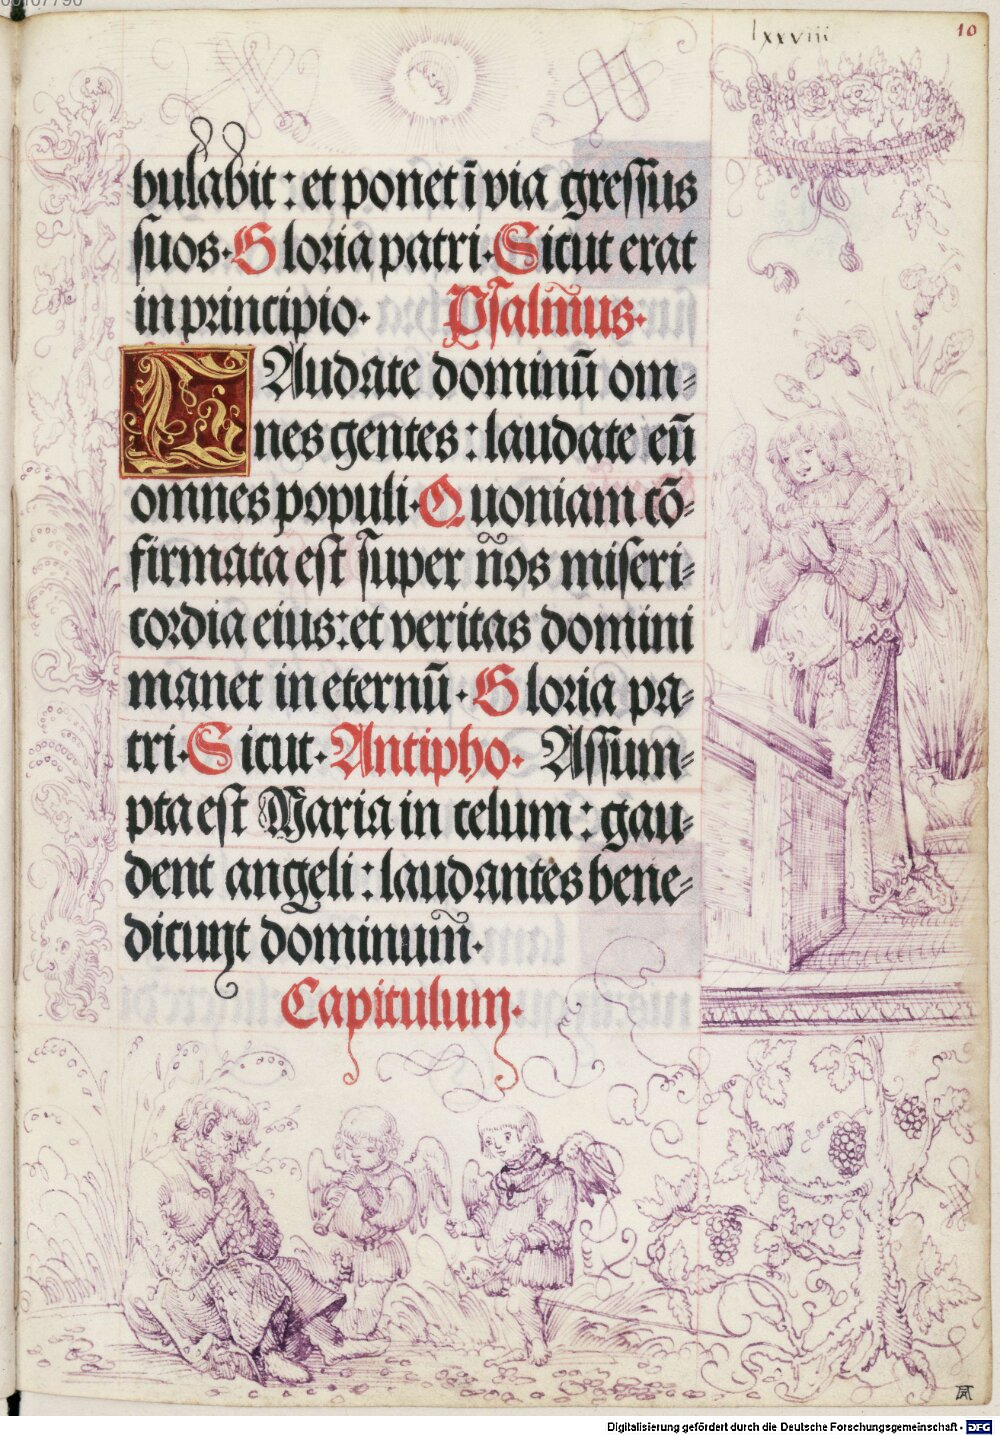 lxxviii
10
bulabit: et ponet ī via gressus
suos. Gloria patri. Sicut erat
in principio. Psalm̄us.
LAudate dominū om-
nes gentes: laudate eū
omnes populi. Quoniam cō-
firmata est super n̄os miseri-
cordia eius: et veritas domini
manet in eternū. Gloria pa-
tri. Sicut. Antipho. Assum-
pta est Maria in celum: gau-
dent angeli: laudantes bene-
dicunt dominum̄.
Capitulum.
AD
Digitalisierung gefördert durch die Deutsche Forschungsgemeinschaft - DFG